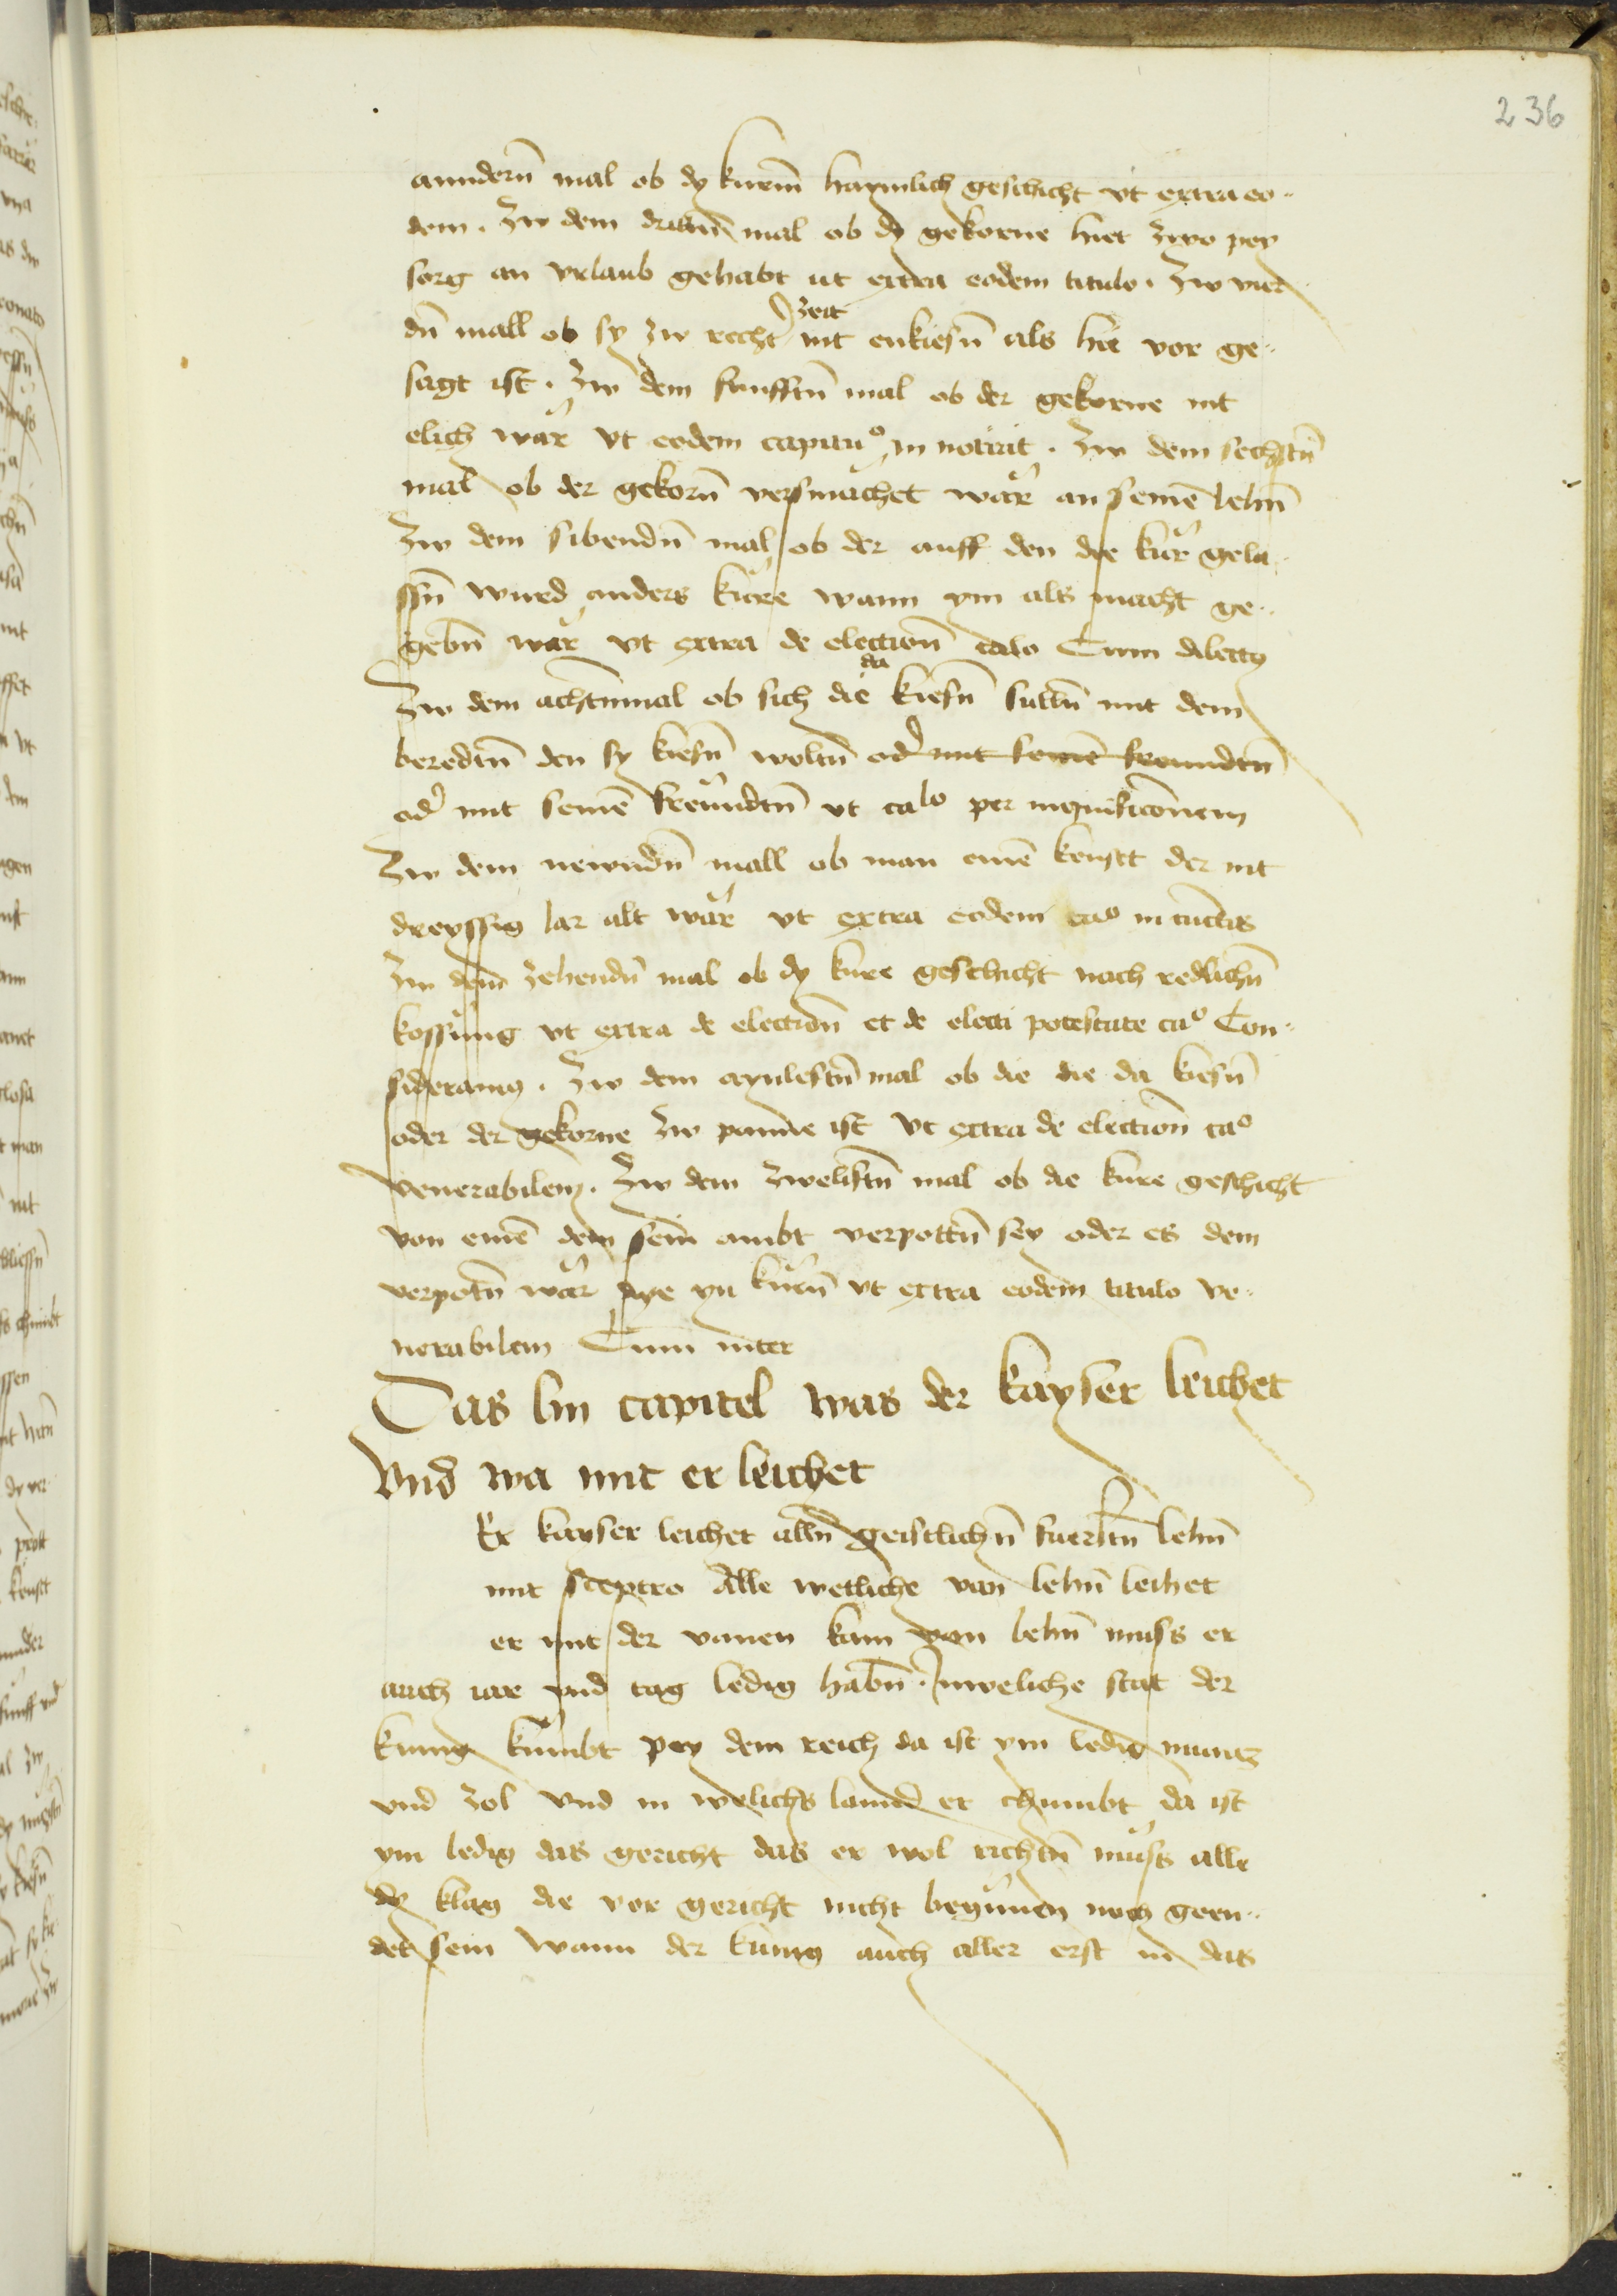 236
anndern̄ mal ob dy kurem̄ haymlich geschicht vt extra eo-
dem. Zw dem dritn̄ mal ob dy gekorne hiet zwo pey
sorg an vrlaub gehabt ut extra eodem titulo. Zw vier
dn̄ mall ob sy zw recht zeit nit enkiesn̄ als hie vor ge-
sagt ist. Zw dem funfftn̄ mal ob der gekorne nit
elich wär vt eodem capitu° in notirit. Zw dem sechstn̄
mal ob der gekorn̄ versmachet wär an seinē lehn̄
Zw dem sibendn̄ mal ob der auff den die kür gela
ssn̄ wurd anders küre wann ym als macht ge-
gebn̄ wär vt extra de election̄ calo Cum dilectz
Zw dem achtn̄mal ob sich die da kiesn̄ sulln̄ mit dem
beredtn̄ den sy kiesn̄ woltn̄ od̄ mit seinē freundtn̄
od̄ mit seinē freundtn̄ vt calo per inquisicōnem
Zw dem newndn̄ mall ob man einē keustt der nit
dreyssig Iar alt wär vt extra eodem ca° in cunctis
Zw dem̄ zehendn̄ mal ob dy kure geschicht nach redlichn̄
kossung vt extra de election̄ et de electi potestate ca° Con-
siderauig. Zw dem aynlestn̄ mal ob die die da kiesn̄
oder der gekorne zw panne ist vt extra de election̄ ca°
venerabilem. Zw dem zwelistn̄ mal ob die kure geschicht
von einē dem sein ambt verpottn̄ sey oder es dem
verpotn̄ wär dye yn kurn̄ vt extra eodem titulo ve-
nerabilem Cum inter
Das liii capitel was der kayser leichet
Vnd wa mit er leichet
Er kayser leichet alln̄ geistlichn̄ fuerstn̄ lehn̄
mit sceptro Alle wetliche van lehn̄ leihet
er mit der vanen kain van lehn̄ muss er
auch iare vnd tag ledig habn̄. Inweliche stat der
kunig kumbt pey dem reich da ist ym ledig muntz
vnd zol vnd in welichs lannd er chumbt da ist
ym ledig das gericht das er wol richtn̄ muss alle
dy klag die vor gericht nicht begunnen noch geen-
det sein wann der kunig auch aller erst in das